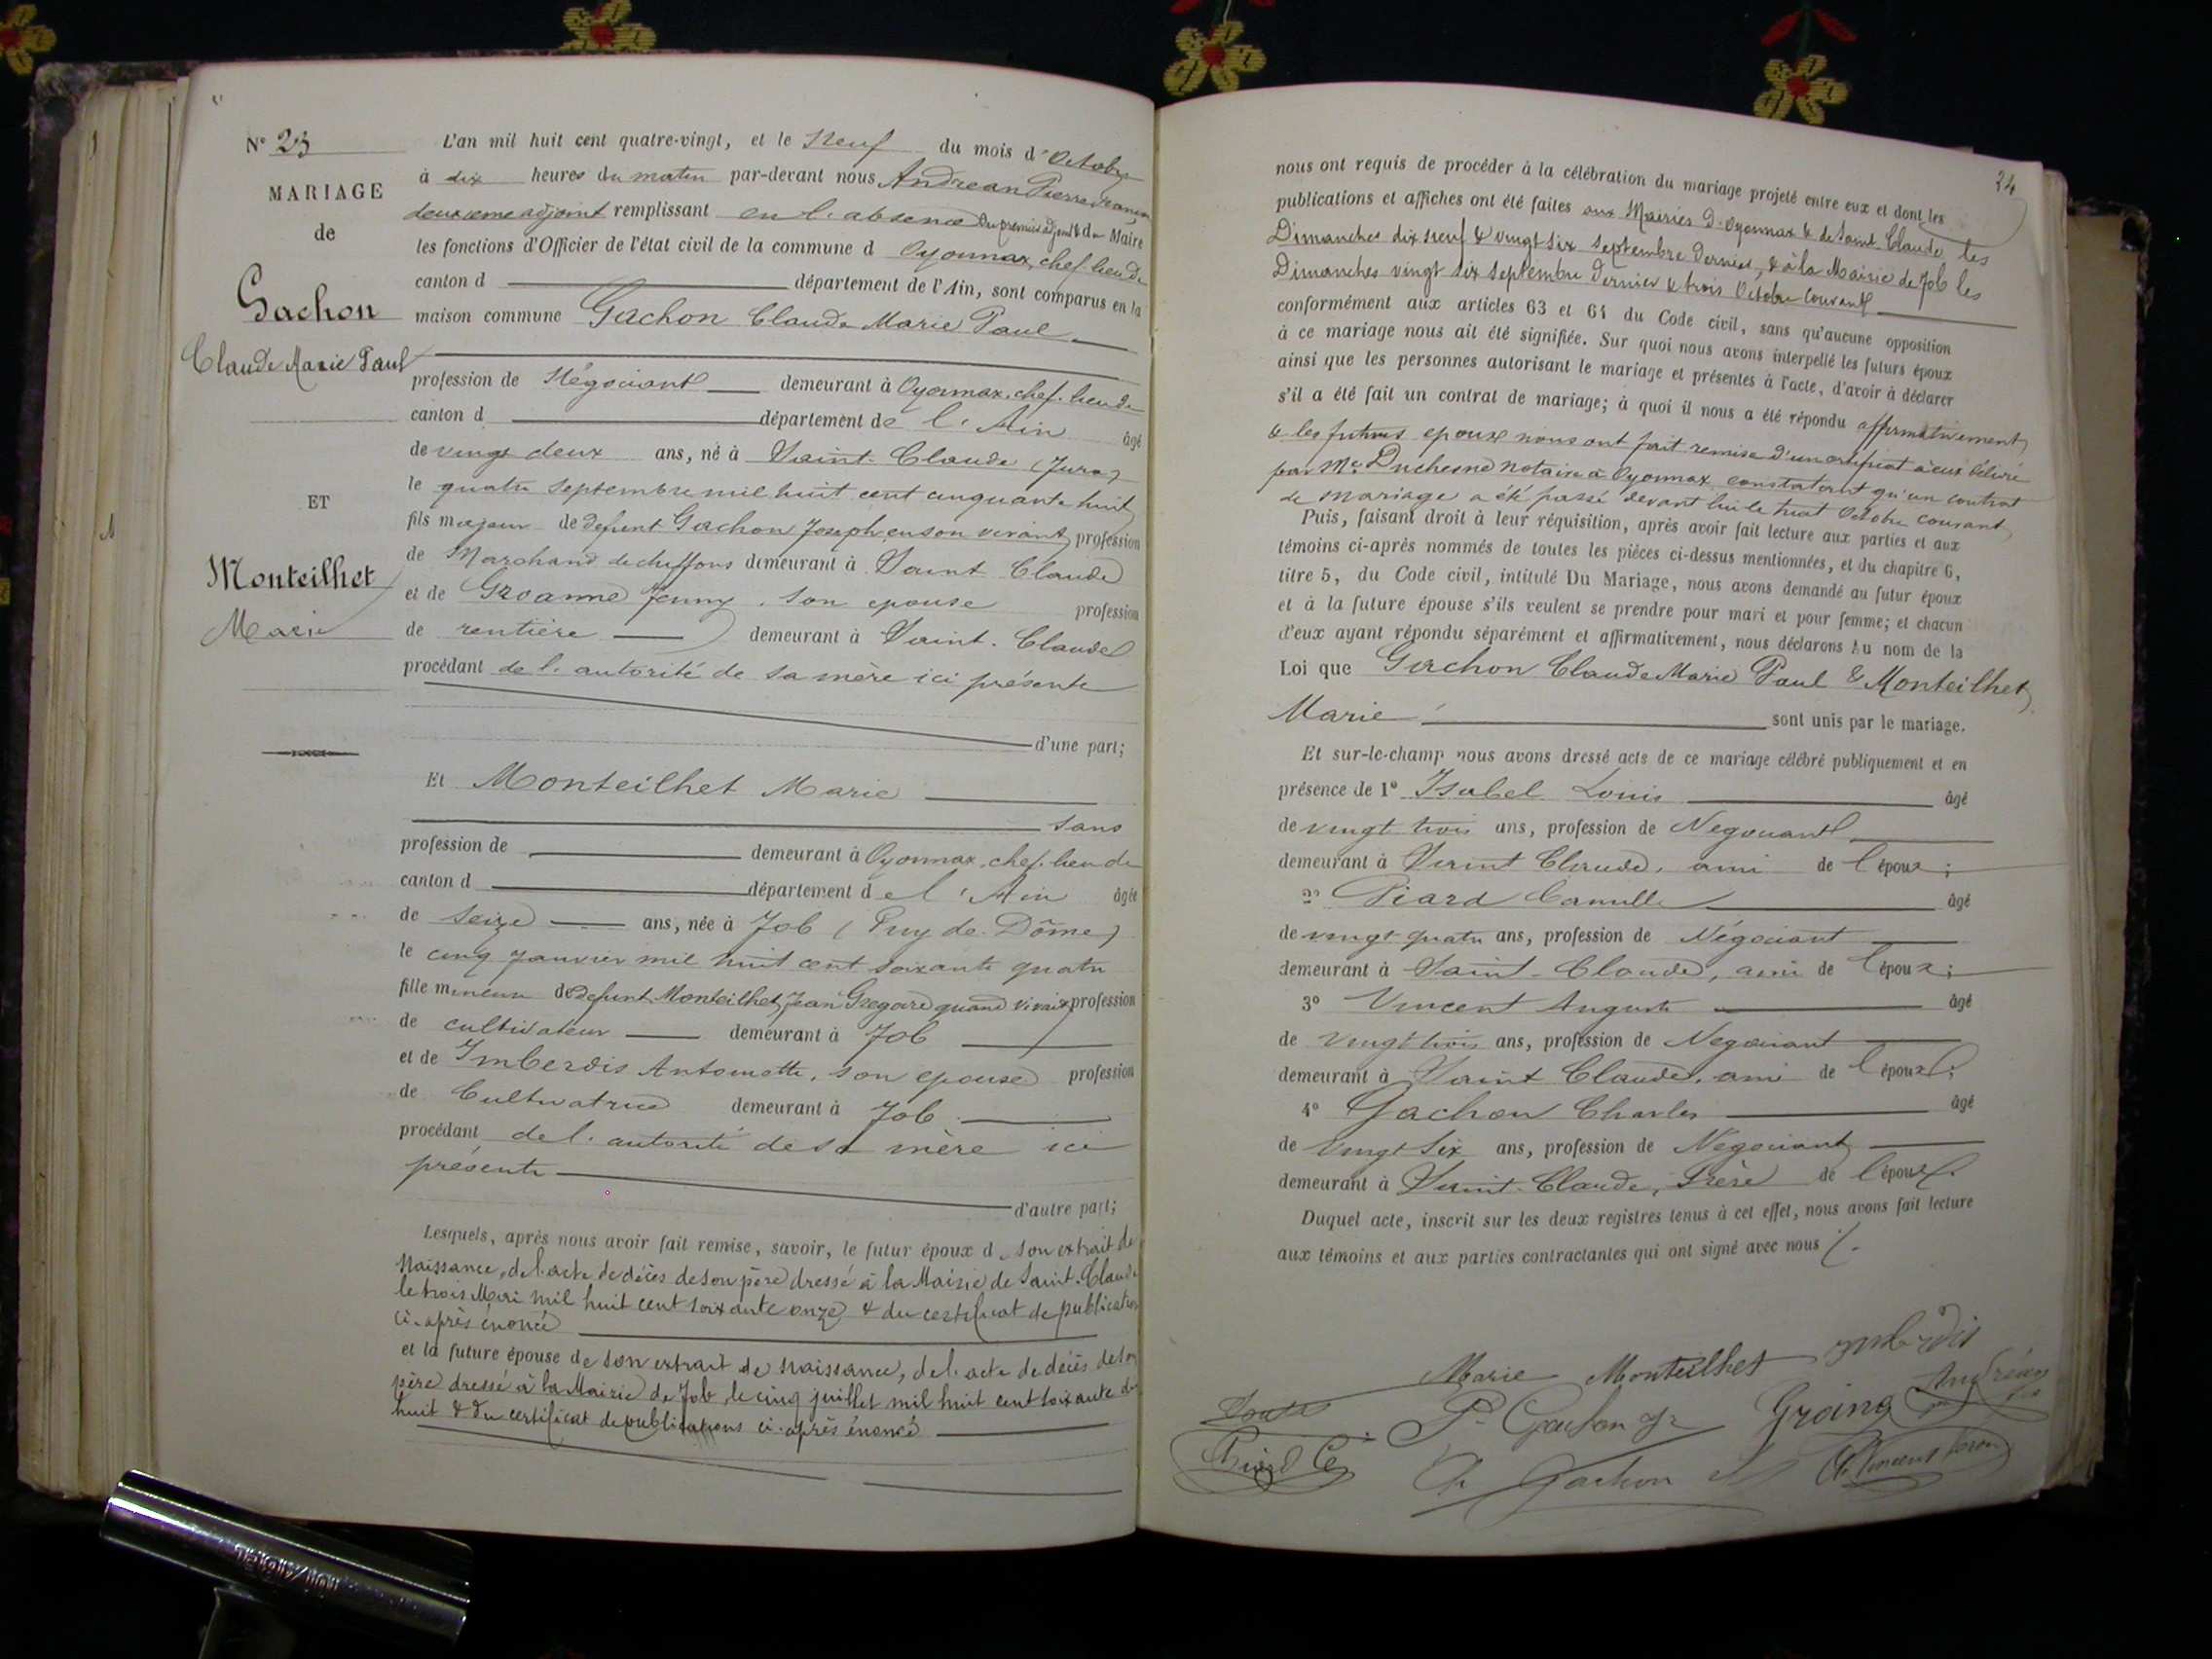 N° 23
MARIAGE
de
Gachon
Claude Marie Paul
ET
Monteilhet
Marie
L'an mil huit cent quatre-vingt, et le Neuf du mois d'Octobre
à dix heures du matin par-devant nous Andrean Pierre
deuxieme adjoint remplissant en l'absence du premier adjoint & du Maire
les fonctions d'Officier de l'état civil de la commune d Oyonnax, chef-lieu de
canton d département de l'Ain, sont comparus en la
maison commune Gachon Claude Marie Paul
profession de Négociant demeurant à Oyonnax, chef-lieu de
canton d département de l'Ain âgé
de vingt deux ans, né à Saint-Claude (Jura)
le quatre septembre mil huit cent cinquante huit
fils majeur de defunt Gachon Joseph, en son vivant profession
de Marchand de chiffons demeurant à Saint Claude
et de Jenny, son epouse profession
de rentière demeurant à Saint-Claude
procédant de l'autorité de sa mère ici présente
d'une part;
Et Monteilhet Marie
sans
profession de demeurant à Oyonnax, chef-lieu de
canton d département de l'Ain âgée
de seize ans, née à Job (Puy-de-Dôme)
le cinq Janvier mil huit cent soixante quatre
fille mineure de defunt Monteilhet Jean Gregoire quand vivait profession
de cultivateur demeurant à Job
et de Imberdis Antoinette, son epouse profession
de Cultivatrice demeurant à Job
procédant de l'autorité de sa mère ici
présente
d'autre part;
Lesquels, après nous avoir fait remise, savoir, le futur époux d son extrait de
Naissance, de l'acte de décès de son père dressé à la Mairie de Saint-Claude
le trois Mai mil huit cent soixante onze & du certificat de publication
ci-après énoncé
et la future épouse de son extrait de Naissance, de l'acte de décès de son
père dressé à la Mairie de Job, le cinq juillet mil huit cent soixante dix
huit & du certificat de publications ci-après énoncé
24
nous ont requis de procéder à la célébration du mariage projeté entre eux et dont les
publications et affiches ont été faites aux Mairies d'Oyonnax & de Saint-Claude les
Dimanches dix neuf & vingt six septembre dernier, & à la Mairie de Job les
Dimanches vingt six septembre dernier & trois Octobre courant
conformément aux articles 63 et 64 du Code civil, sans qu'aucune opposition
à ce mariage nous ait été signifiée. Sur quoi nous avons interpellé les futurs époux
ainsi que les personnes autorisant le mariage et présentes à l'acte, d'avoir à déclarer
s'il a été fait un contrat de mariage; à quoi il nous a été répondu affirmativement
& les futurs epoux nous ont fait remise d'un certificat à eux délivré
par Me Duchesne notaire à Oyonnax constatant qu'un contrat
de mariage a été passé devant lui le huit Octobre courant
Puis, faisant droit à leur réquisition, après avoir fait lecture aux parties et aux
témoins ci-après nommés de toutes les pièces ci-dessus mentionnées, et du chapitre 6,
titre 5, du Code civil, intitulé Du Mariage, nous avons demandé au futur époux
et à la future épouse s'ils veulent se prendre pour mari et pour femme; et chacun
d'eux ayant répondu séparément et affirmativement, nous déclarons Au nom de la
Loi que Gachon Claude Marie Paul & Monteilhet
Marie sont unis par le mariage.
Et sur-le-champ nous avons dressé acte de ce mariage célébré publiquement et en
présence de 1° Isabel Louis âgé
de vingt trois ans, profession de Negociant
demeurant à Saint Claude, ami de l'époux;
2° Piard Camille âgé
de vingt-quatre ans, profession de Négociant
demeurant à Saint-Claude, ami de l'époux;
3° Vincent Auguste âgé
de Vingt trois ans, profession de Negociant
demeurant à Saint Claude, ami de l'époux;
4° Gachon Charles âgé
de Vingt Six ans, profession de Negociant
demeurant à Saint-Claude, Frère de l'époux.
Duquel acte, inscrit sur les deux registres tenus à cet effet, nous avons fait lecture
aux témoins et aux parties contractantes qui ont signé avec nous
Marie Monteilhet
P. Gachon
Piard
Gachon